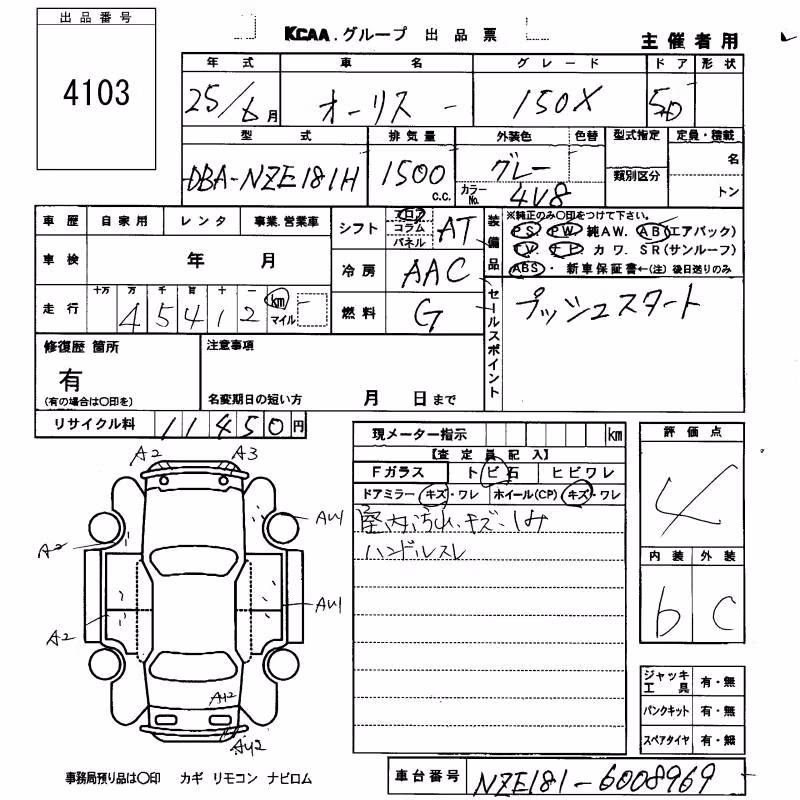 出品番号
4103
KCAA.グループ 出品票
主催者用
年式 車名 グレード ドア 形状
25/6月 オーリス 150X 5D
型式 排気量 外装色 色替 型式指定 定員・積載
DBA-NZE181H 1500c.c. グレー 類別区分 名
カラーNo. 4V8 トン
車歴 自家用 レンタ 事業.営業車
シフト フロア コラム パネル AT
装備品 ※純正のみ○印をつけて下さい。
PS. PW. 純AW. AB(エアバック)
TV. ナビ. カワ. SR(サンルーフ)
ABS・新車保証書←(注)後日送りのみ
車検 年 月
冷房 AAC
走行 十万 万 千 百 十 一
4 5 4 1 2 km マイル
燃料 G
セールスポイント プッシュスタート
修復歴 箇所
有
(有の場合は○印を)
注意事項
名変期日の短い方 月 日まで
リサイクル料 11450円
現メーター指示 km
【査定員記入】
Fガラス トビ石 ヒビワレ
ドアミラー キズ・ワレ ホイール(CP) キズ・ワレ
室内汚れ、キズ、しみ
ハンドルスレ
評価点
4
内装 外装
b C
A2 A3
AU1
A2
AU1
A2
A12
AU2
ジャッキ工具 有・無
パンクキット 有・無
スペアタイヤ 有・無
事務局預り品は○印 カギ リモコン ナビロム
車台番号 NZE181-6008969